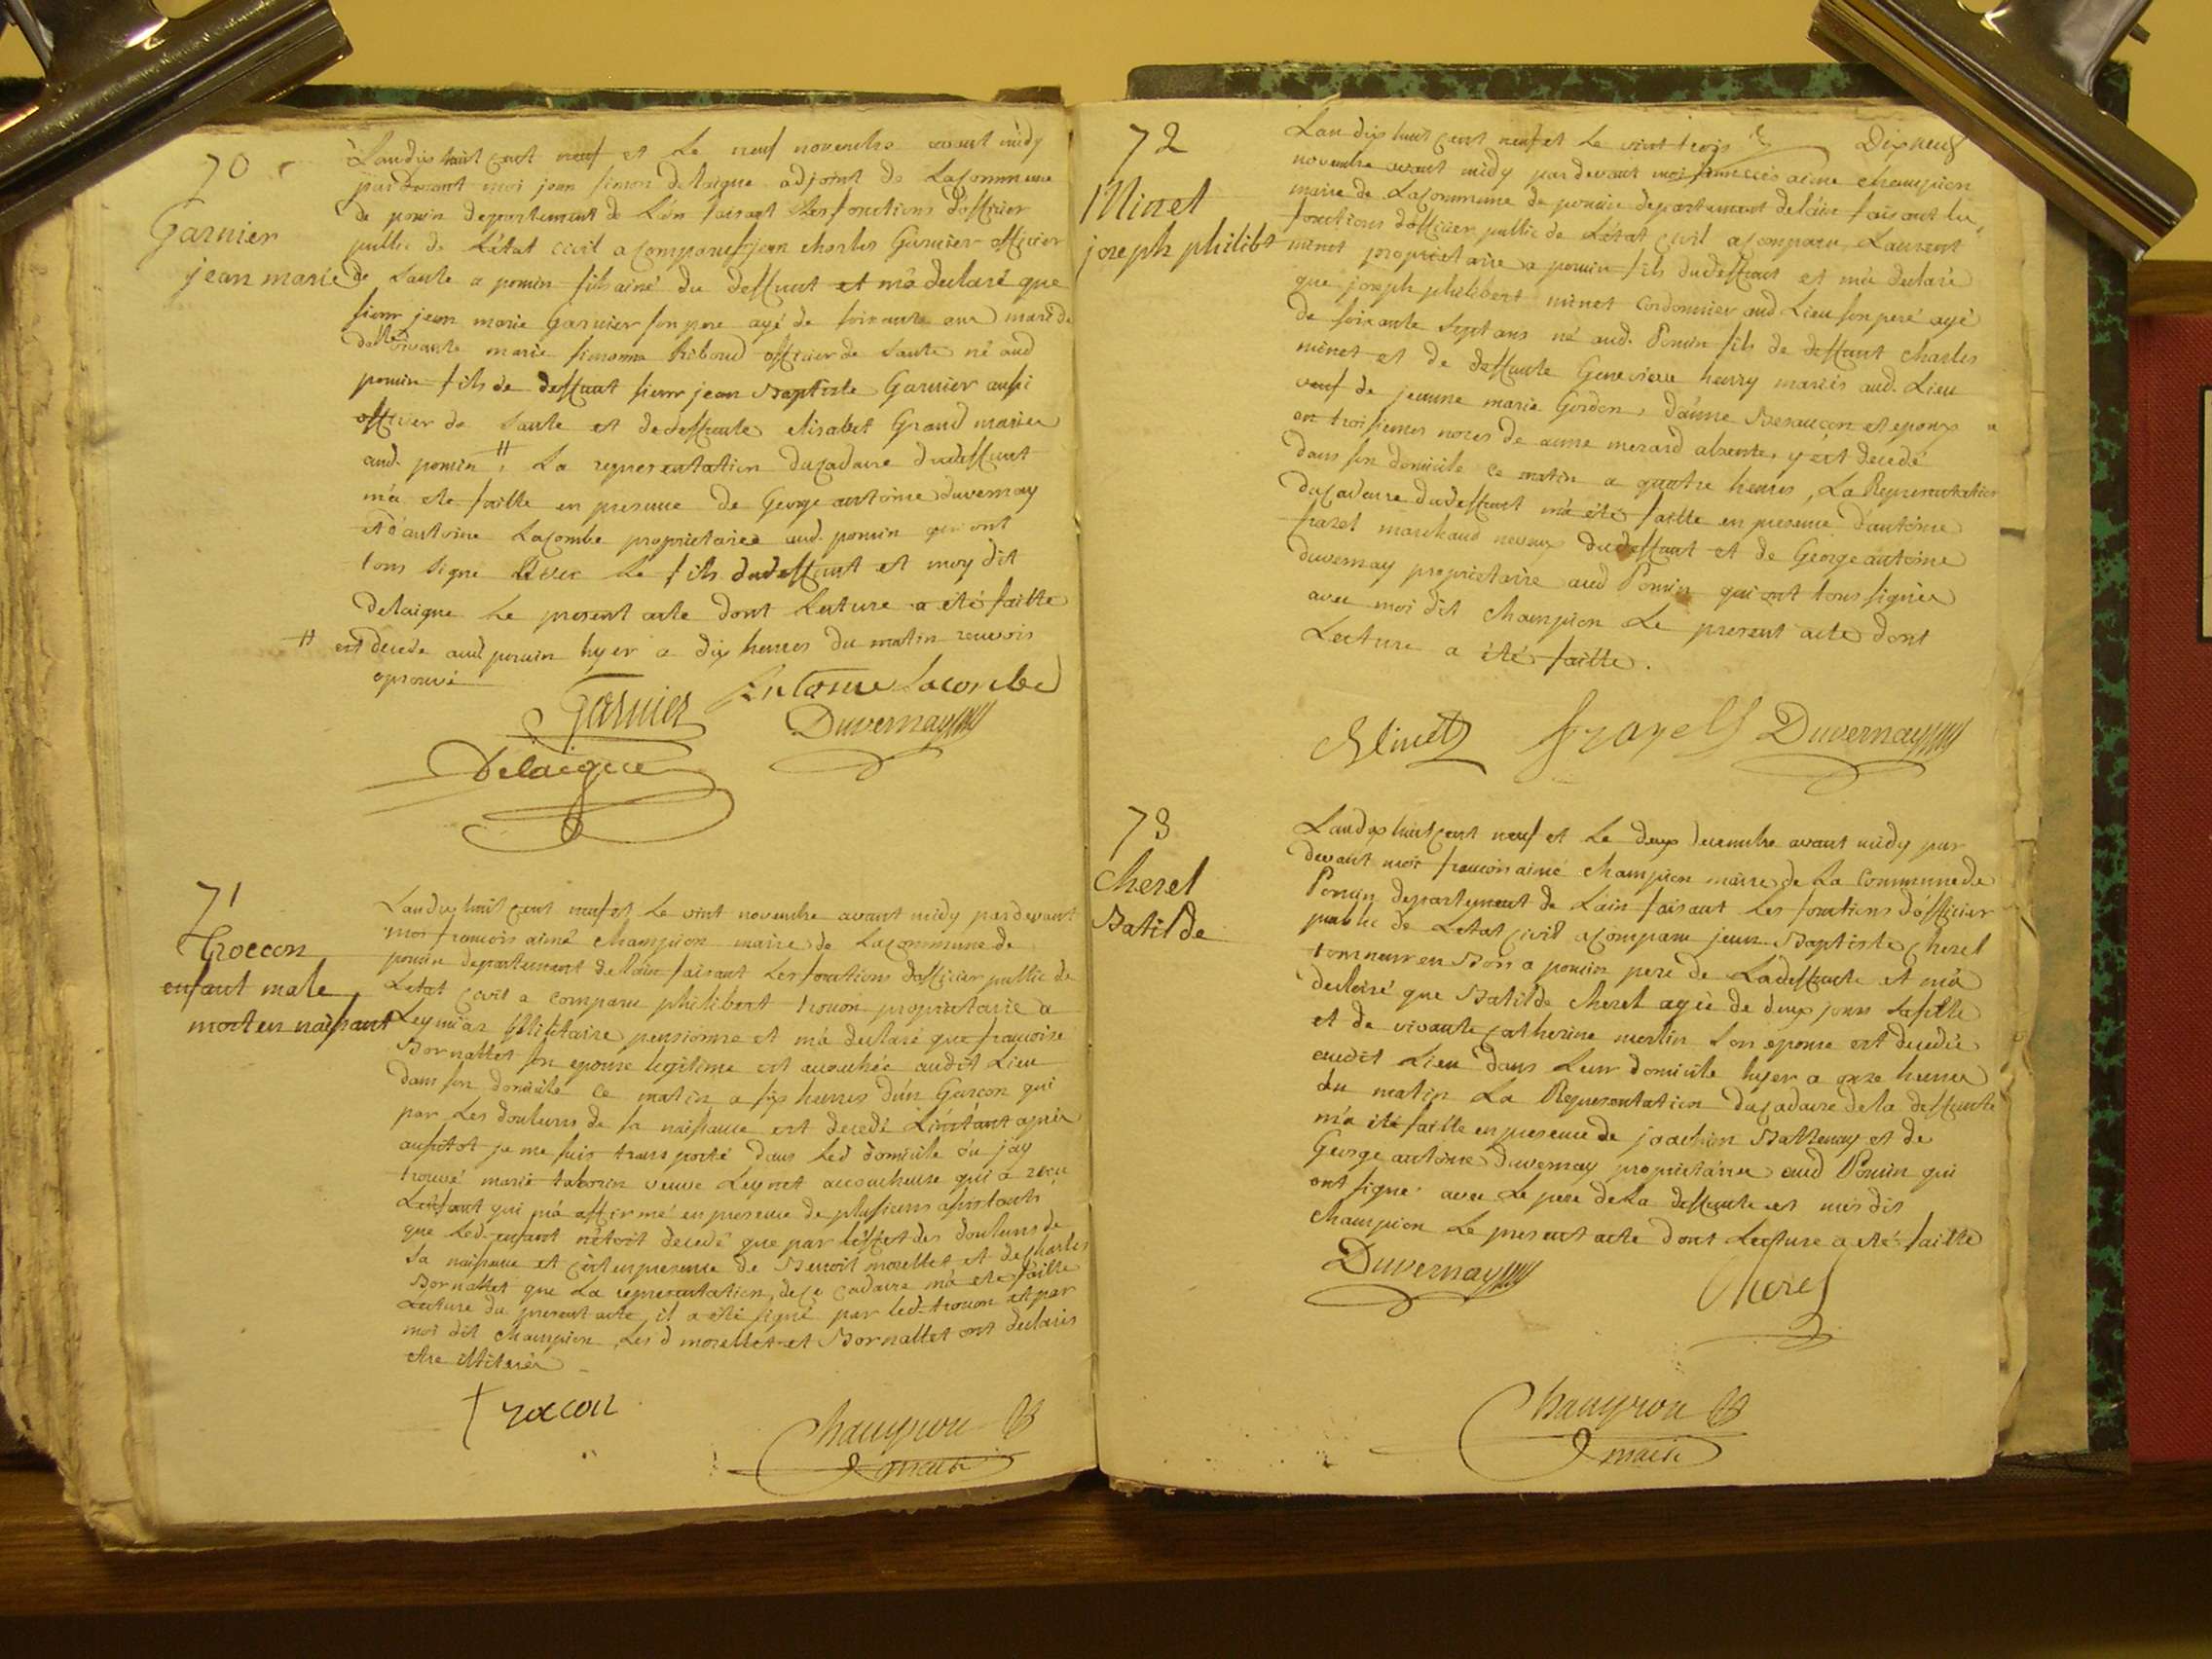 70
Garnier
jean marie
Landix huit cent neuf et Le neuf novembre avant midy
pardevant moi jean simon delaigue adjoint de Lacommune
de poncin departement de L'ain faisant les fonctions d'officier
public de L'état civil a comparu sr jean charles Garnier officier
de Sante a poncin fils ainé du deffunt et m'a declaré que
sieur jean marie Garnier son pere agé de soixante ans marié
de vivante marie simonne Riboud officier de Sante né aud
poncin fils de deffunt sieur jean Baptiste Garnier aussi
officier de Sante et dedeffunte elisabet Grand mariés
aud. poncin, # La representation ducadavre dudeffunt
m'a ete faitte en presence de George antoine duvernay
et d'antoine Lacombe proprietaires aud. poncin qui ont
tous signé avec Le fils dudeffunt et moy dit
delaigue Le present acte dont Lecture a été faitte
# est decedé aud poncin hyer a dix heures du matin renvois
aprouvé
Garnier Antoine Lacombe
Duvernay
Delaigue
71
Troccon
enfant male
mort en naissant
Landix huit cent neuf et Le vint novembre avant midy pardevant
moi francois aimé champion maire de Lacommune de
poncin departement delain faisant Les fonctions dofficier public de
Letat civil a comparu philibert trocon proprietaire a
Leymiar Militaire pensionné et m'a declaré que francoise
Bornattet son epouse legitime est accouchée audit Lieu
dans son domicile ce matin a six heures d'un Garcon qui
par Les douleurs de sa naissance est decedé L'instant après
aussitot je me suis transporté dans Led domicile ou jay
trouvé marie taborin veuve Leynet accoucheuse qui a recu
Lenfant qui m'a affirmé en presence de plusieurs assistants
que Led. enfant n'etoit decedé que par l'effet des douleurs de
sa naissance et c'est en presence de Benoit morellet et de charles
Bornattet que La representation de ce cadavre m'a ete faitte
Lecture du present acte, il a été signé par led. trocon et par
moi dit champion Les d morellet et Bornattet ont declarés
etre illitérés
troccon
Champion
maire
Dix neuf
72
Minet
joseph philibt
Lan dix huit cent neuf et Le vint trois
novembre avant midy pardevant moi francois aimé champion
maire de Lacommune de poncin departement delain faisant les
fonctions dofficier public de L'état civil a comparu Laurent
minet proprietaire a poncin fils dudeffunt et m'a declaré
que joseph philibert minet Cordonnier aud Lieu son peré agé
de soixante Sept ans né aud. Poncin fils de deffunt charles
minet et de deffunte Genevieve henry mariés aud. Lieu
veuf de jeanne marie Gordon, danne Besançon et epoux
en troisiemes noces de anne merard absente, y est decedé
dans son domicile ce matin a quatre heures, La Representation
ducadavre dudeffunt m'a été faitte en presence d'antoine
frazel marchand neveux dudeffunt et de George antoine
duvernay proprietaire aud Poncin qui ont tous signés
avec moi dit champion Le present acte dont
Lecture a été faitte.
Minet frazel Duvernay
73
Cherel
Batilde
Landix huit cent neuf et Le deux decembre avant midy par
devant moi francois aimé champion maire de La Commune de
Poncin departement de Lain faisant Les fonctions d'officier
public de Letat civil a comparu jean Baptiste Cherel
tourneur en Bois a poncin pere de Ladeffunte et m'a
declaré que Batilde cherel agée de deux jours sa fille
et de vivante catherine merlin son epouse est decedée
audit Lieu dans Leur domicile hyer a onze heures
du matin La Representation ducadavre dela deffunte
m'a été faitte en presence de joachim Battenay et de
George antoine duvernay proprietaires aud Poncin qui
ont signé avec Le pere deLa deffunte et moi dit
champion Le present acte dont Lecture a eté faitte
Duvernay Cherel
Champion
maire